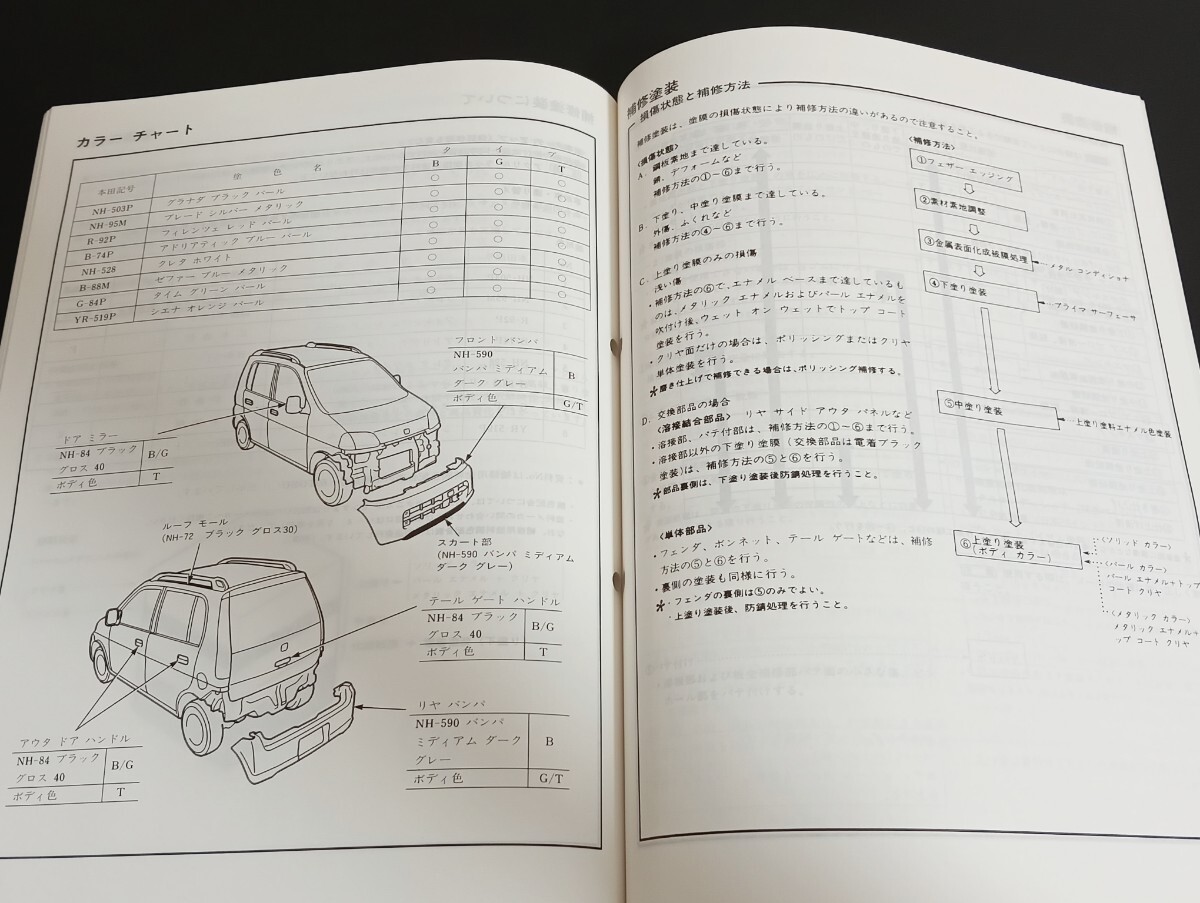 カラー チャート
本田記号 塗 色 名 タ イ プ
B G T
NH-503P グラナダ ブラック パール ○ ○ ○
NH-95M ブレード シルバー メタリック ○ ○ ○
R-92P フィレンツェ レッド パール ○ ○ ○
B-74P アドリアティック ブルー パール ○ ○ ○
NH-528 クレタ ホワイト ○ ○ ○
B-88M ゼファー ブルー メタリック ○ ○ ○
G-84P タイム グリーン パール ○ ○ ○
YR-519P シエナ オレンジ パール ○ ○ ○
フロント バンパ
NH-590
バンパ ミディアム
ダーク グレー
B
ボディ色 G/T
ドア ミラー
NH-84 ブラック
グロス 40
B/G
ボディ色 T
スカート部
(NH-590 バンパ ミディアム
ダーク グレー)
ルーフ モール
(NH-72 ブラック グロス30)
テール ゲート ハンドル
NH-84 ブラック
グロス 40
B/G
ボディ色 T
リヤ バンパ
NH-590 バンパ
ミディアム ダーク
グレー
B
ボディ色 G/T
アウタ ドア ハンドル
NH-84 ブラック
グロス 40
B/G
ボディ色 T
補修塗装
損傷状態と補修方法
補修塗装は、塗膜の損傷状態により補修方法の違いがあるので注意すること。
〈損傷状態〉
A. 鋼板素地まで達している。
錆、デフォームなど
補修方法の①-⑥まで行う。
B. 下塗り、中塗り塗膜まで達している。
外傷、ふくれなど
補修方法の④-⑥まで行う。
C. 上塗り塗膜のみの損傷
浅い傷
・補修方法の⑥で、エナメル ベースまで達しているも
のは、メタリック エナメルおよびパール エナメルを
吹付け後、ウェット オン ウェットでトップ コート
塗装を行う。
・クリヤ面だけの場合は、ポリッシングまたはクリヤ
単体塗装を行う。
＊磨き仕上げで補修できる場合は、ポリッシング補修する。
D. 交換部品の場合
〈溶接結合部品〉 リヤ サイド アウタ パネルなど
・溶接部、パテ付部は、補修方法の①-⑥まで行う。
・溶接部以外の下塗り塗膜(交換部品は電着ブラック
塗装)は、補修方法の⑤と⑥を行う。
＊部品裏側は、下塗り塗装後防錆処理を行うこと。
〈単体部品〉
・フェンダ、ボンネット、テール ゲートなどは、補修
方法の⑤と⑥を行う。
・裏側の塗装も同様に行う。
＊・フェンダの裏側は⑤のみでよい。
・上塗り塗装後、防錆処理を行うこと。
〈補修方法〉
①フェザー エッジング
②素材素地調整
③金属表面化成被膜処理
メタル コンディショナ
④下塗り塗装
プライマ サーフェーサ
⑤中塗り塗装
上塗り塗料エナメル色塗装
⑥上塗り塗装
(ボディ カラー)
〈ソリッド カラー〉
〈パール カラー〉
パール エナメル+トップ
コート クリヤ
〈メタリック カラー〉
メタリック エナメル+
ップ コート クリヤ